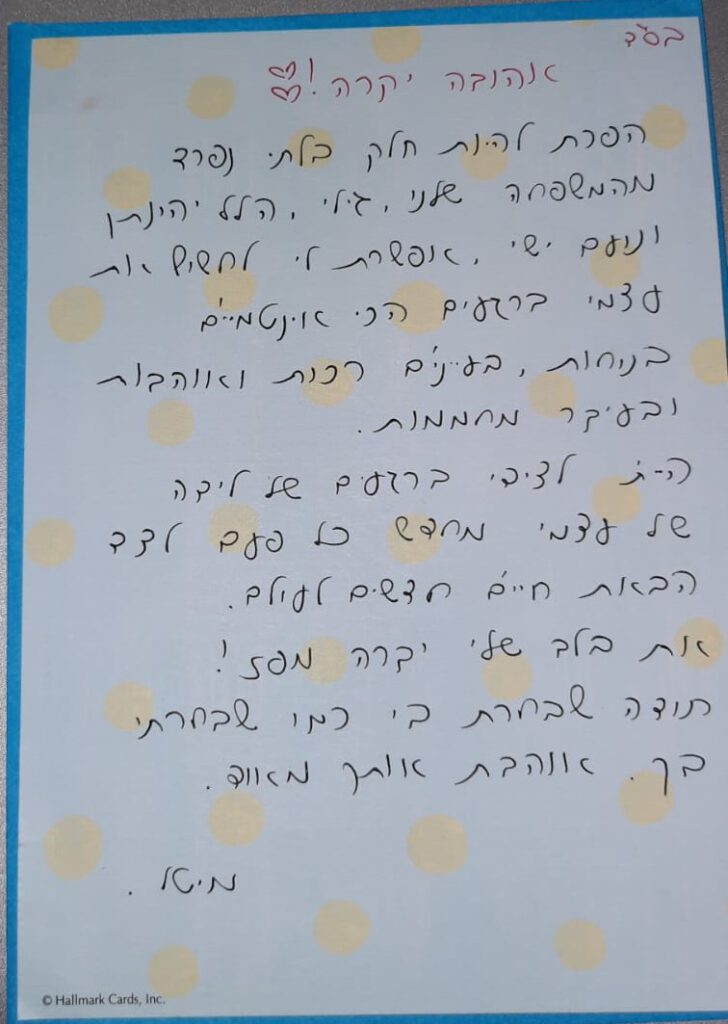 בס"ד
אהובה יקרה!
הפכת להיות חלק בלתי נפרד
מהמשפחה שלנו, גילי, הלל יהונתן
ונועם ישי, אפשרת לי לחשוף את
עצמי ברגעים הכי אינטמיים
בניחות, בעיניים רכות ואווהבות
ובעיקר מחממות.
היית לצידי ברגעים של לידה
של עצמי מחדש כל פעם לצד
הבאת חיים חדשים לעולם.
את בלב שלי יקרה מפז!
תודה שבחרת בי כמו שבחרתי
בך. אווהבת אותך מאווד.
מיטל.
© Hallmark Cards, Inc.